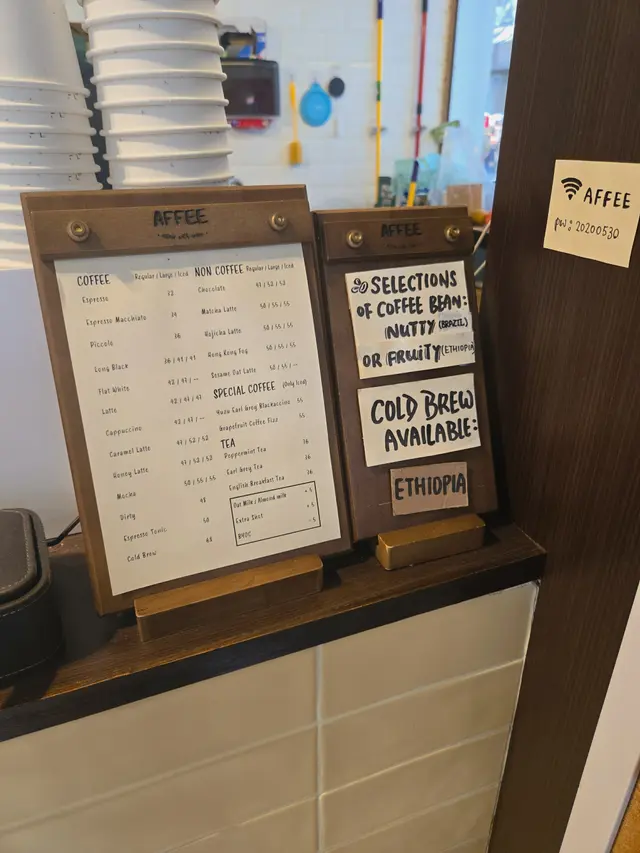 AFFEE
COFFEE Regular / Large / Iced
Espresso 32
Espresso Macchiato 34
Piccolo 36
Long Black 36 / 41 / 41
Flat White 42 / 47 / —
Latte 42 / 47 / 47
Cappuccino 42 / 47 / —
Caramel Latte 47 / 52 / 52
Honey Latte 47 / 52 / 52
Mocha 50 / 55 / 55
Dirty 48
Espresso Tonic 50
Cold Brew 48
NON COFFEE Regular / Large / Iced
Chocolate 47 / 52 / 52
Matcha Latte 50 / 55 / 55
Hojicha Latte 50 / 55 / 55
Hong Kong Fog 50 / 55 / 55
Sesame Oat Latte 50 / 55 / —
SPECIAL COFFEE (Only Iced)
Yuzu Earl Grey Blackuccino 55
Grapefruit Coffee Fizz 55
TEA
Peppermint Tea 36
Earl Grey Tea 36
English Breakfast Tea 36
Oat Milk / Almond milk + 5
Extra Shot + 5
BYOC - 5
AFFEE
SELECTIONS
OF COFFEE BEAN:
NUTTY (BRAZIL)
OR FRUITY (ETHIOPIA
COLD BREW
AVAILABLE:
ETHIOPIA
AFFEE
pw: 20200530